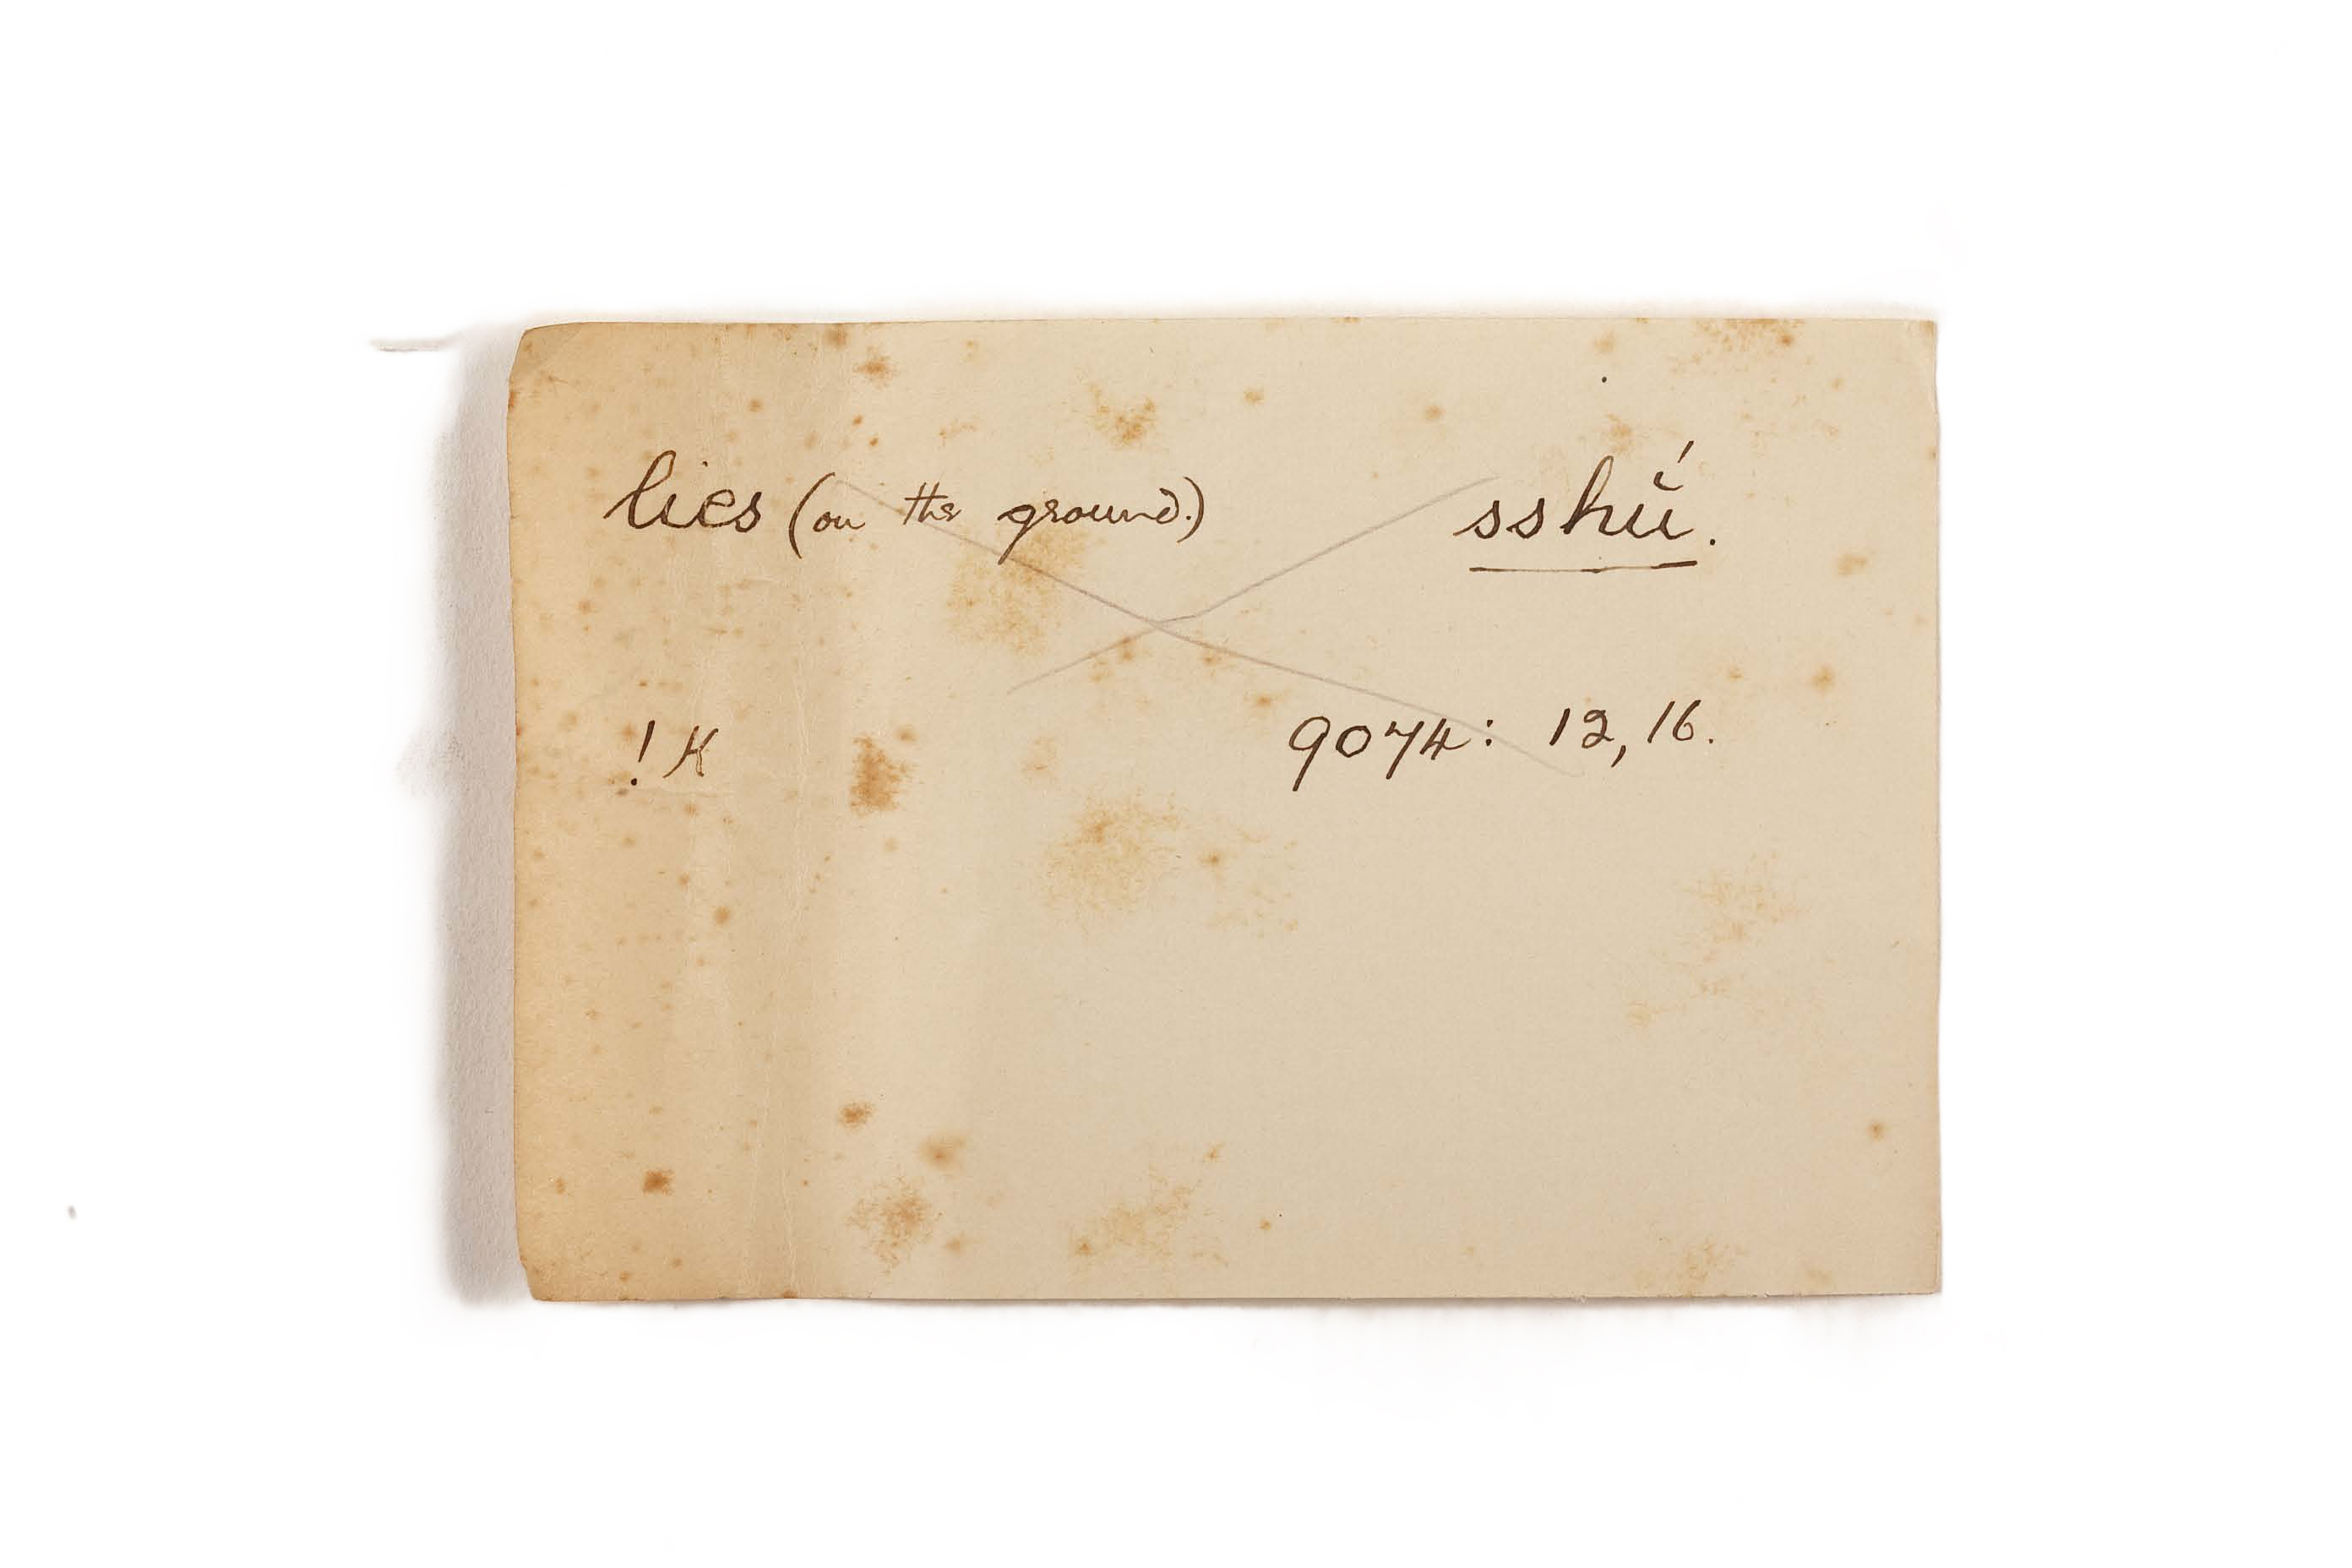 lies (on the ground.) sshṹ.
! K 9074: 12, 16.